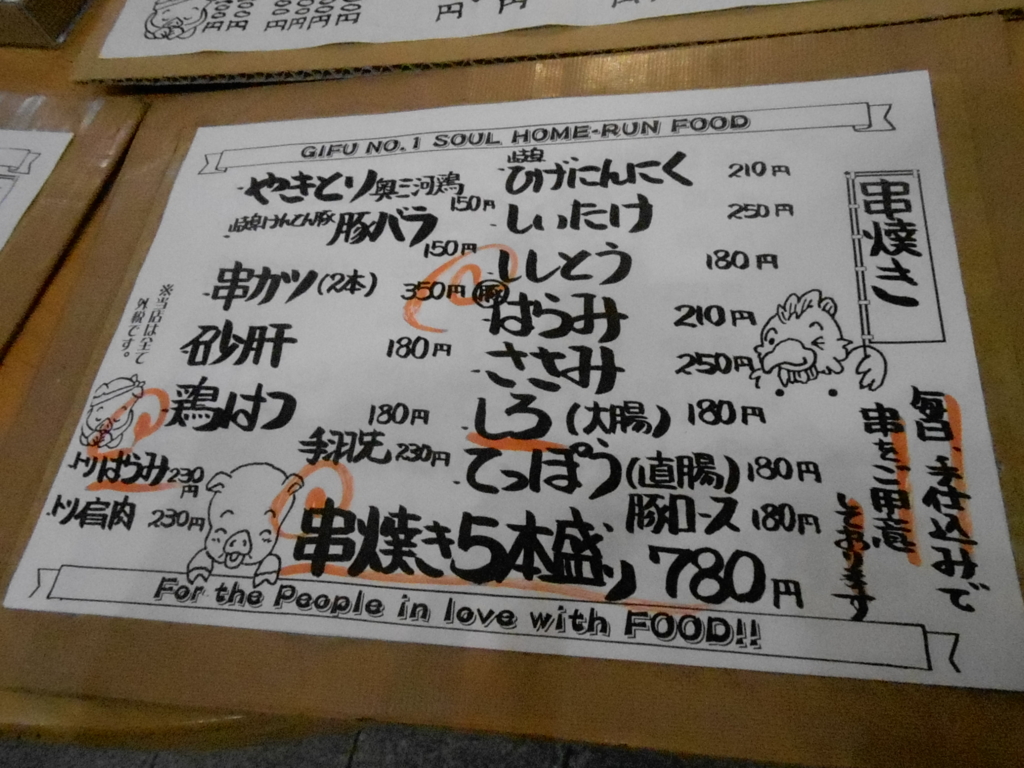 GIFU NO.1 SOUL HOME-RUN FOOD
串焼き
やきとり 奥三河鶏 150円
岐阜けんとん豚 豚バラ 150円
串カツ(2本) 350円
砂肝 180円
鶏はつ 180円
手羽先 230円
トリはらみ 230円
トリ肩肉 230円
岐阜 ひげにんにく 210円
しいたけ 250円
ししとう 180円
豚 はらみ 210円
ささみ 250円
しろ(大腸) 180円
てっぽう(直腸) 180円
豚ロース 180円
串焼き5本盛り 780円
毎日、手仕込みで
串をご用意
しております
※当店は全て
外税です。
For the People in love with FOOD!!